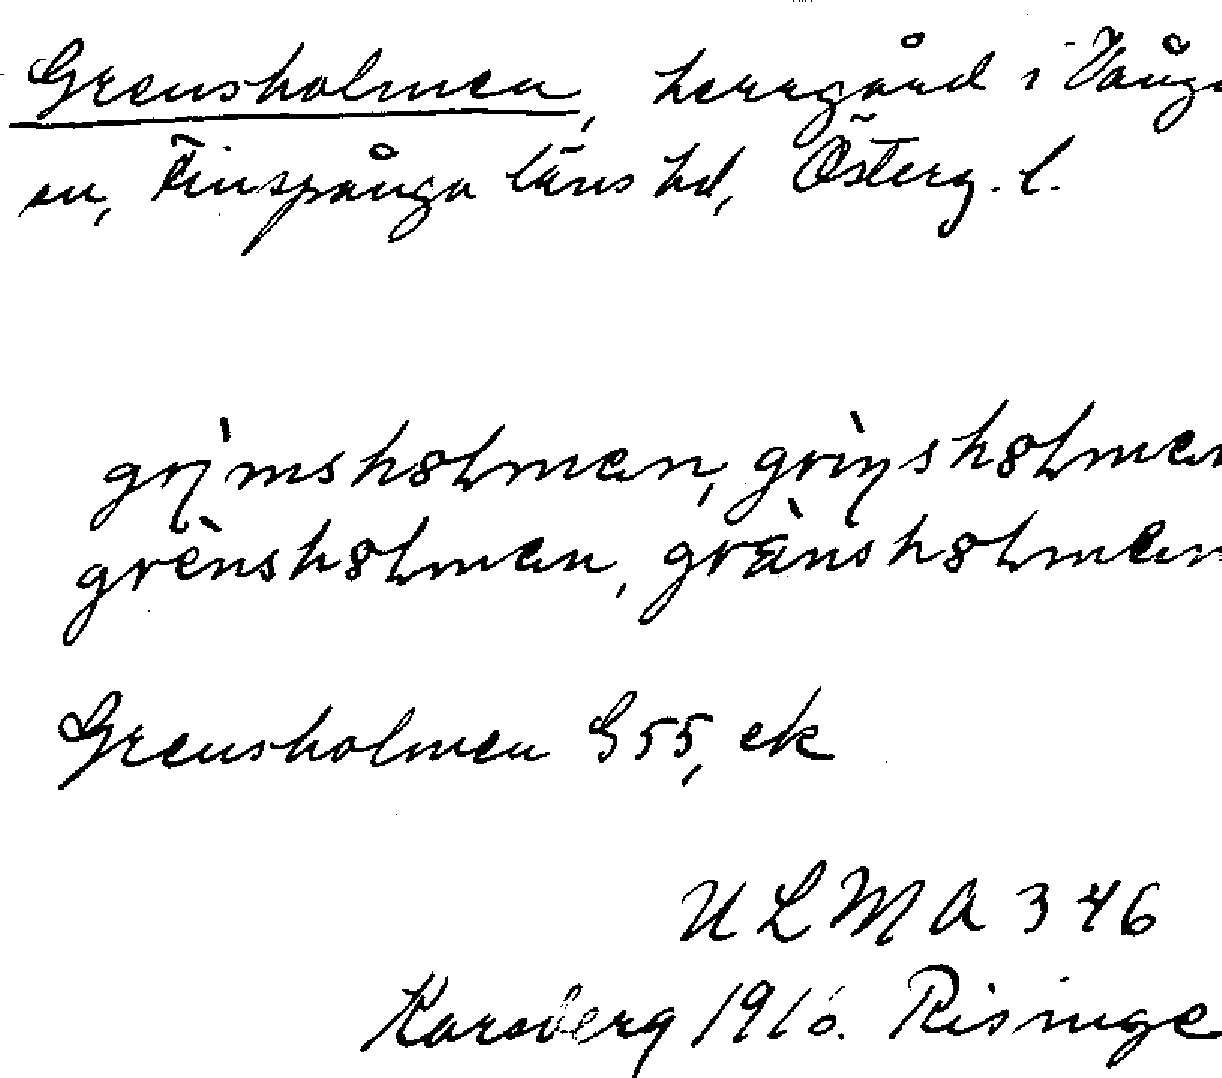 Grensholmen, herrgård i Vånga
sn, Finspånga läns hd, Österg. l.
grensholmen, gränsholmen
Grensholmen G 55, ek
ULMA 346
Karsberg 1916. Risinge